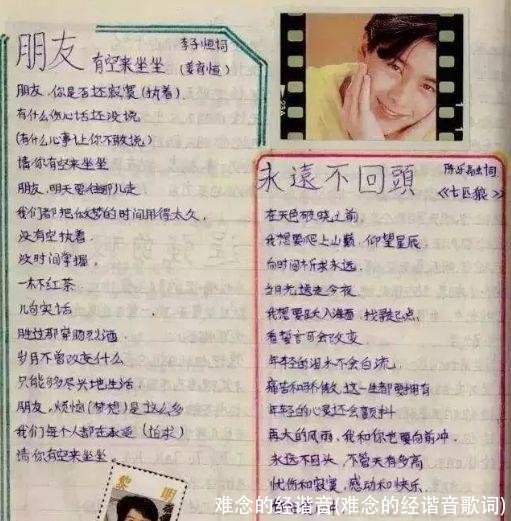 朋友
有空来坐坐
李子恒词
(姜育恒)
朋友,你是否还寂寞(执着)
有什么伤心话还没说
(有什么心事让你不敢说)
请你有空来坐坐
朋友,明天要往哪儿走
我们都把做梦的时间用得太久,
没有空执着,
没时间掌握,
一杯红茶
几句实话
胜过那穿肠烈酒,
岁月不曾改变什么
只能够尽兴地生活,
朋友,烦恼(梦想)是这么多
我们每个人都在承受(追求)
请你有空来坐坐
黎 明
永遠不回頭
陈乐融词
《七匹狼》
在天色破晓之前,
我想要爬上山巅,仰望星辰
向时间祈求永远,
当月光送走今夜
我想要跃入海面,找寻起点,
看誓言可会改变
年轻的泪水不会白流,
痛苦和骄傲,这一生都要拥有
年轻的心灵还会颤抖
再大的风雨,我和你也要向前冲,
永远不回头,不管天有多高
忧伤和寂寞,感动和快乐
难念的经谐音(难念的经谐音歌词)